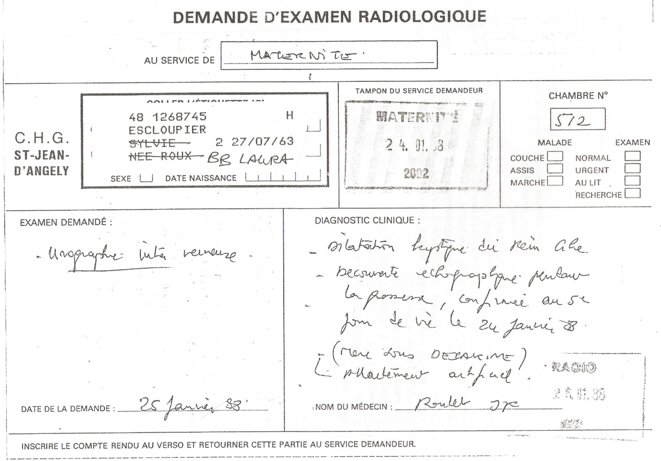 DEMANDE D'EXAMEN RADIOLOGIQUE
AU SERVICE DE MATERNITE
C.H.G.
ST-JEAN-
D'ANGELY
48 1268745 H
ESCLOUPIER
SYLVIE 2 27/07/63
NEE ROUX BB LAURA
SEXE DATE NAISSANCE
TAMPON DU SERVICE DEMANDEUR
MATERNITÉ
24. 01. 88
2002
CHAMBRE N°
512
MALADE EXAMEN
COUCHE NORMAL
ASSIS URGENT
MARCHE AU LIT
RECHERCHE
EXAMEN DEMANDÉ :
- Urographie intra veineuse.
DATE DE LA DEMANDE : 25 Janvier 88.
DIAGNOSTIC CLINIQUE :
- Dilatation kystique du Rein
- Decouverte echographique pendant
la grossesse, confirmée au 5e
jour de vie le 24 Janvier 88.
- (mere sous )
Allaitement artificiel.
RADIO
25. 01. 88
NOM DU MÉDECIN : Roulet
INSCRIRE LE COMPTE RENDU AU VERSO ET RETOURNER CETTE PARTIE AU SERVICE DEMANDEUR.